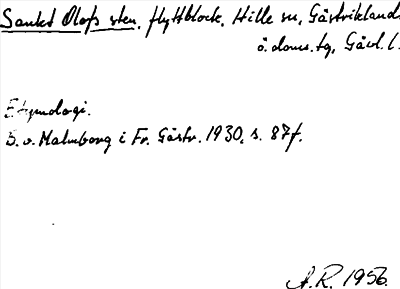 Sankt Olofs sten, flyttblock, Hille sn, Gästriklands
ö. doms. tg, Gävl. l.
Etymologi.
B. v. Malmborg i Fr. Gästr. 1930, s. 87 f.
A. R. 1956.